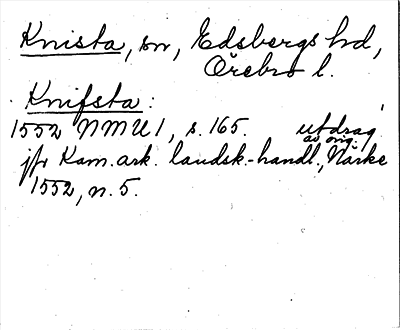 Knista, sn, Edsbergs hd,
Örebro l.
Knifsta:
1552 NMU 1, s. 165. utdrag
av orig.
jfr Kam. ark. landsk.-handl., Närke
1552, n. 5.